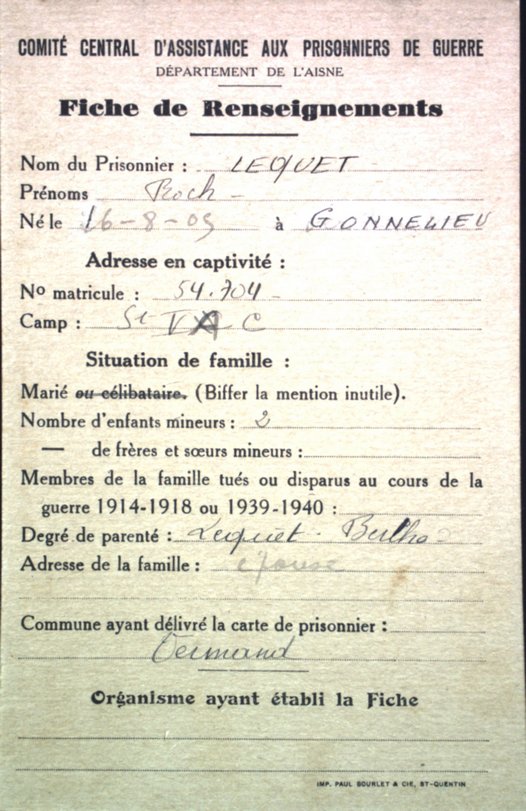 COMITÉ CENTRAL D'ASSISTANCE AUX PRISONNIERS DE GUERRE
DÉPARTEMENT DE L'AISNE
Fiche de Renseignements
Nom du Prisonnier : LEQUET
Prénoms Roch
Né le 16-8-09 à GONNELIEU
Adresse en captivité :
No matricule : 54.704
Camp : St V C
Situation de famille :
Marié ou célibataire. (Biffer la mention inutile).
Nombre d'enfants mineurs : 2
— de frères et sœurs mineurs :
Membres de la famille tués ou disparus au cours de la
guerre 1914-1918 ou 1939-1940 :
Degré de parenté : Lequet - Bertha
Adresse de la famille : épouse
Commune ayant délivré la carte de prisonnier :
Vermand
Organisme ayant établi la Fiche
IMP. PAUL BOURLET & CIE, ST-QUENTIN